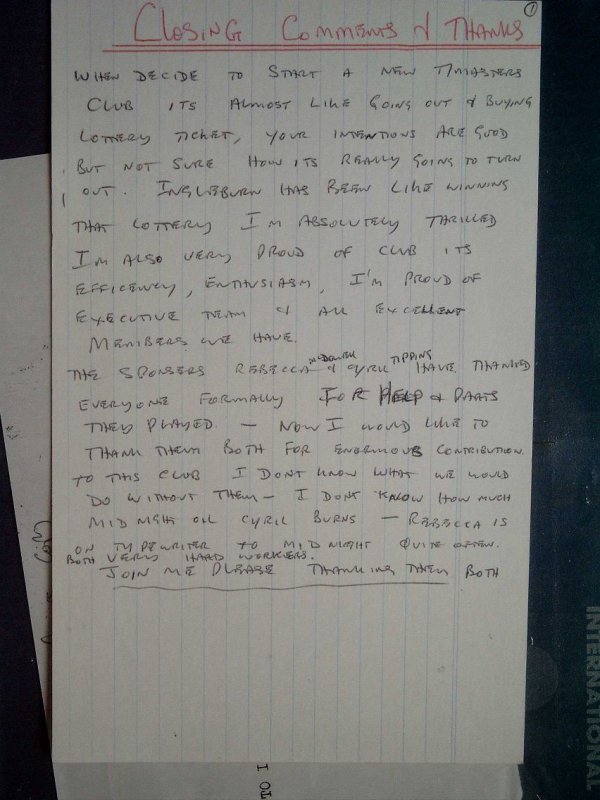 1
CLOSING COMMENTS & THANKS
WHEN DECIDE TO START A NEW T/MASTERS
CLUB ITS ALMOST LIKE GOING OUT & BUYING
LOTTERY TICKET, YOUR INTENTIONS ARE GOOD
BUT NOT SURE HOW ITS REALLY GOING TO TURN
OUT. INGLEBURN HAS BEEN LIKE WINNING
THAT LOTTERY I'M ABSOLUTELY THRILLED
I'M ALSO VERY PROUD OF CLUB ITS
EFFICENCY, ENTHUSIASM, I'M PROUD OF
EXECUTIVE TEAM & ALL EXCELLENT
MEMBERS WE HAVE.
THE SPONSERS REBECCA & CYRIL TIPPING HAVE THANKED
EVERYONE FORMALLY FOR HELP & PARTS
THEY PLAYED — NOW I WOULD LIKE TO
THANK THEM BOTH FOR ENORMOUS CONTRIBUTION
TO THIS CLUB I DONT KNOW WHAT WE WOULD
DO WITHOUT THEM — I DONT KNOW HOW MUCH
MID NIGHT OIL CYRIL BURNS — REBECCA IS
ON TYPEWRITER TO MIDNIGHT QUITE OFTEN.
BOTH VERY HARD WORKERS.
JOIN ME PLEASE THANKING THEM BOTH
INTERNATIONAL
TO I